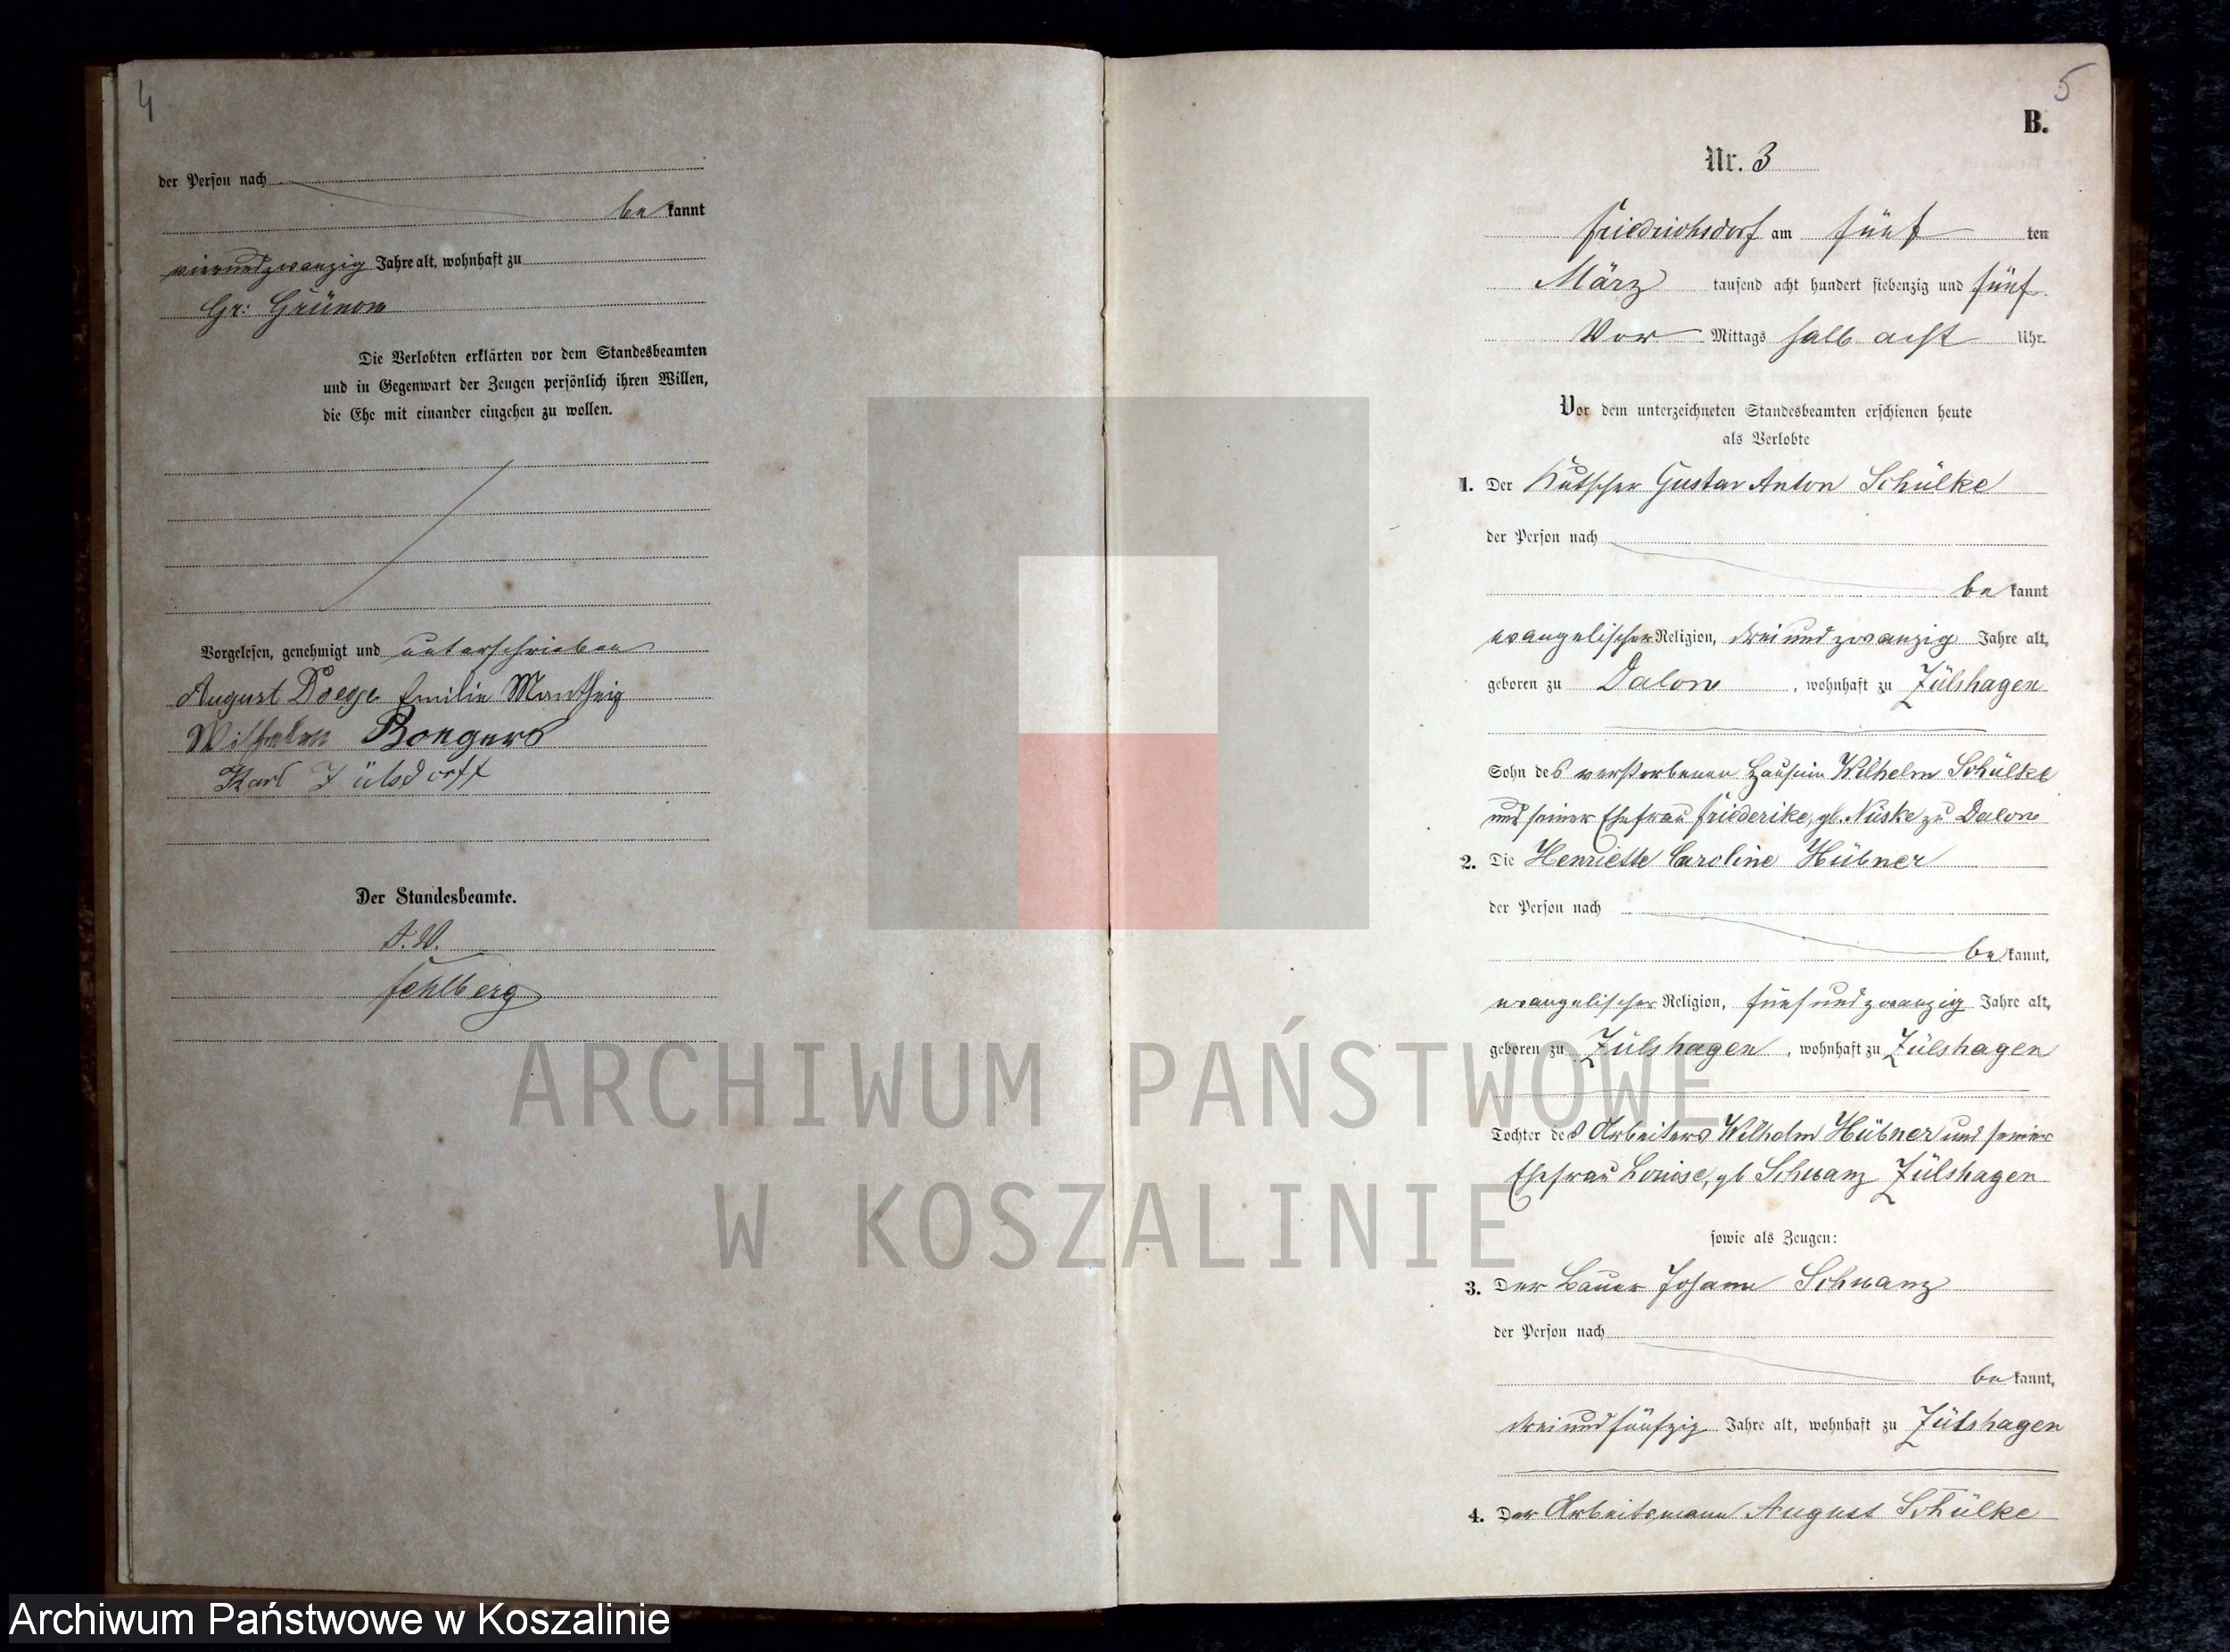 4
der Person nach
be kannt
vierundzwanzig Jahre alt, wohnhaft zu
Gr: Grünow
Die Verlobten erklärten vor dem Standesbeamten
und in Gegenwart der Zeugen persönlich ihren Willen,
die Ehe mit einander eingehen zu wollen.
Vorgelesen, genehmigt und unterschrieben
August Doege Emilie Mantheig
Wilhelm Bongers
Karl Zülsdorff
Der Standesbeamte.
I. V.
Fehlberg
5
B.
Nr. 3
Friedrichsdorf am fünf ten
März tausend acht hundert siebenzig und fünf
Vor Mittags halb acht Uhr.
Vor dem unterzeichneten Standesbeamten erschienen heute
als Verlobte
1. Der Kutscher Gustav Anton Schülke
der Person nach
be kannt
evangelischer Religion, dreiundzwanzig Jahre alt,
geboren zu Dalow, wohnhaft zu Zülshagen
Sohn des verstorbenen Wilhelm Schülke
und seiner Ehefrau Friederike, gb. Nüske zu Dalow
2. Die Henriette Caroline Hübner
der Person nach
be kannt,
evangelischer Religion, fünfundzwanzig Jahre alt,
geboren zu Zülshagen, wohnhaft zu Zülshagen
Tochter des Arbeiters Wilhelm Hübner und seiner
Ehefrau Louise, gb Schwanz Zülshagen
sowie als Zeugen:
3. Der Bauer Johann Schwanz
der Person nach
be kannt,
dreiundfünfzig Jahre alt, wohnhaft zu Zülshagen
4. Der Arbeitsmann August Schülke
ARCHIWUM PAŃSTWOWE
W KOSZALINIE
Archiwum Państwowe w Koszalinie